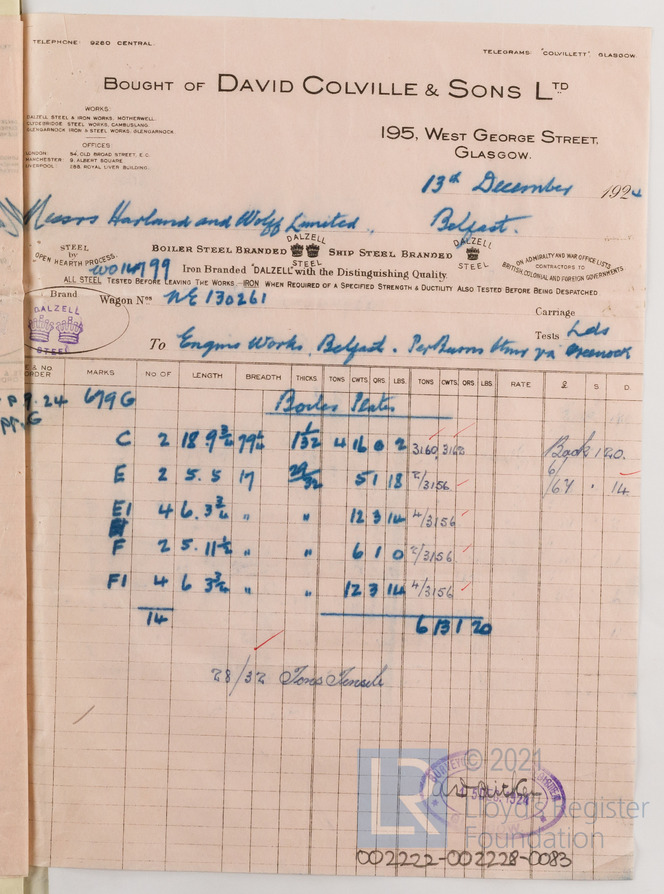 TELEPHONE: 9260 CENTRAL.
TELEGRAMS: "COLVILLETT" GLASGOW
BOUGHT OF DAVID COLVILLE & SONS LTD
WORKS:
DALZELL STEEL & IRON WORKS, MOTHERWELL.
CLYDEBRIDGE STEEL WORKS, CAMBUSLANG.
GLENGARNOCK IRON & STEEL WORKS, GLENGARNOCK.
OFFICES:
LONDON: 54, OLD BROAD STREET, E.C.
MANCHESTER: 9, ALBERT SQUARE
LIVERPOOL: 288, ROYAL LIVER BUILDING.
195, WEST GEORGE STREET,
GLASGOW.
13th December 1924
Messrs Harland and Wolff Limited, Belfast.
STEEL by OPEN HEARTH PROCESS.
BOILER STEEL BRANDED DALZELL STEEL SHIP STEEL BRANDED DALZELL STEEL
ON ADMIRALTY AND WAR OFFICE LISTS
CONTRACTORS TO
BRITISH, COLONIAL AND FOREIGN GOVERNMENTS
WO 14799
Iron Branded "DALZELL" with the Distinguishing Quality.
ALL STEEL TESTED BEFORE LEAVING THE WORKS - IRON WHEN REQUIRED OF A SPECIFIED STRENGTH & DUCTILITY ALSO TESTED BEFORE BEING DESPATCHED
Brand Wagon Nos NE 130261
DALZELL STEEL
Carriage
Tests Lds
To Engine Works, Belfast. Per Burns Stmr via Greenock
& NO. ORDER MARKS NO OF LENGTH BREADTH THICKS TONS CWTS QRS. LBS. TONS CWTS QRS LBS RATE £ S D.
9.24 679G Boiler Plates
C 2 18 9 3/4 79 1/4 1 1/32 4 16 0 2 3160, 3162
E 2 5. 5 17 29/32 5 1 18 2/3156
E1 4 6. 3 3/4 " " 12 3 14 4/3156
F 2 5. 11 1/2 " " 6 1 0 2/3156
F1 4 6 3 3/4 " " 12 3 14 4/3156
14 6 13 1 20
28/32 Tons Tensile
© 2021
LR
Lloyd's Register
Foundation
002222-002228-0083